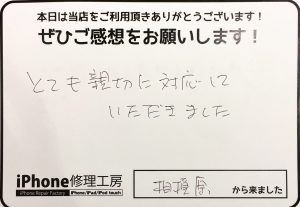 本日は当店をご利用頂きありがとうございます！
ぜひご感想をお願いします！
とても親切に対応して
いただきました
iPhone修理工房
iPhone Repair Factory iPhone/iPad/iPod touch
相模原 から来ました